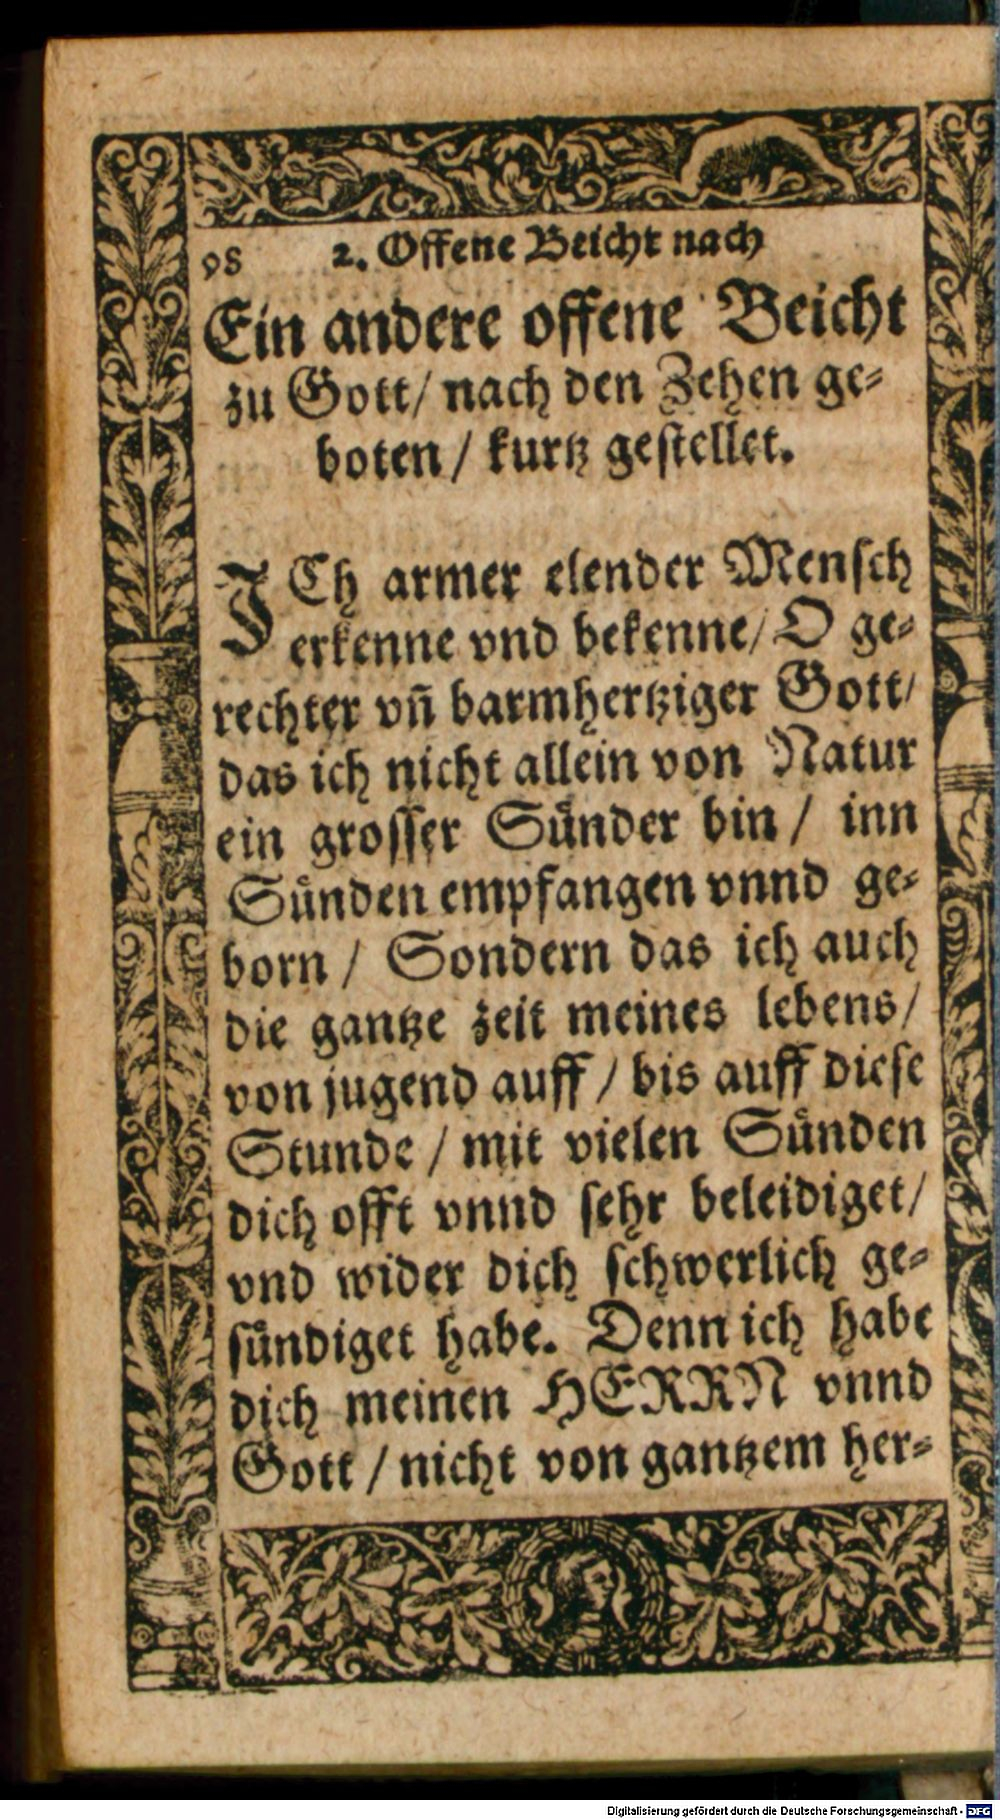 98 2. Offene Beicht nach
Ein andere offene Beicht
zu Gott/ nach den Zehen ge⸗
boten/ kurtz gestellet.
ICh armer elender Mensch
erkenne vnd bekenne/ O ge⸗
rechter vñ barmhertziger Gott/
das ich nicht allein von Natur
ein grosser Sünder bin/ inn
Sünden empfangen vnnd ge⸗
born/ Sondern das ich auch
die gantze zeit meines lebens/
von jugend auff/ bis auff diese
Stunde/ mit vielen Sünden
dich offt vnnd sehr beleidiget/
vnd wider dich schwerlich ge⸗
sündiget habe. Denn ich habe
dich meinen HERRN vnnd
Gott/ nicht von gantzem her⸗
Digitalisierung gefördert durch die Deutsche Forschungsgemeinschaft - DFG